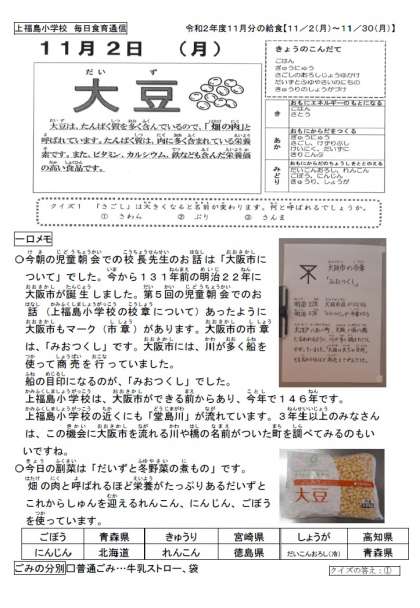 上福島小学校 毎日食育通信
令和2年度11月分の給食【11/2(月)~11/30(月)】
11月2日 (月)
だい ず
大豆
大豆は、たんぱく質を多く含んでいるので、「畑の肉」と
呼ばれています。たんぱく質は、肉に多く含まれている栄養
素です。また、ビタミン、カルシウム、鉄なども含んだ栄養価
の高い食品です。
きょうのこんだて
ごはん
ぎゅうにゅう
さごしのおろしじょうゆがけ
だいずとふゆやさいのにもの
きゅうりのしょうがづけ
き
おもにエネルギーのもとになる
ごはん
さとう
あか
おもにからだをつくる
さごし、けずりぶし
けいにく、だいず
ぎゅうにゅう
みどり
おもにからだのちょうしをととのえる
だいこんおろし、れんこん
ごぼう、にんじん
きゅうり、しょうが
クイズ1 「さごし」は大きくなると名前が変わります。何と呼ばれるでしょうか。
① さわら ② ぶり ③ さんま
一口メモ
○今朝の児童朝会での校長先生のお話は「大阪市に
ついて」でした。今から131年前の明治22年に
大阪市が誕生しました。第5回の児童朝会でのお
話(上福島小学校の校章について)あったように
大阪市もマーク(市章)があります。大阪市の市章
は、「みおつくし」です。大阪市には、川が多く船を
使って商売を行っていました。
船の目印になるのが、「みおつくし」でした。
上福島小学校は、大阪市ができる前からあり、今年で146年です。
上福島小学校の近くにも「堂島川」が流れています。3年生以上のみなさん
は、この機会に大阪市を流れる川や橋の名前がついた町を調べてみるのもい
いですね。
大阪市の市章
「みおつくし」
○今日の副菜は「だいずと冬野菜の煮もの」です。
畑の肉と呼ばれるほど栄養がたっぷりあるだいずと
これからしゅんを迎えるれんこん、にんじん、ごぼう
を使っています。
大豆
ごぼう 青森県 きゅうり 宮崎県 しょうが 高知県
にんじん 北海道 れんこん 徳島県 だいこんおろし(冷) 青森県
ごみの分別 □普通ごみ…牛乳ストロー、袋
クイズの答え:①